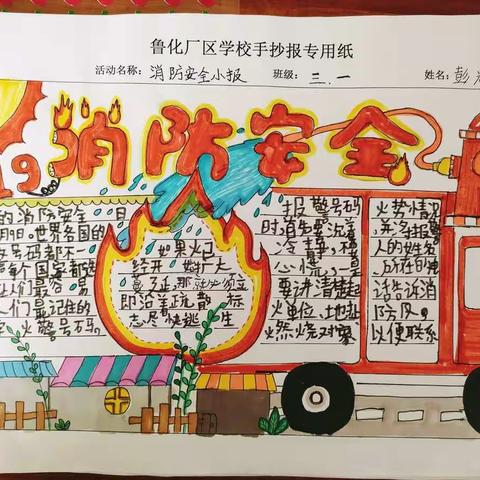 鲁化厂区学校手抄报专用纸
活动名称: 消防安全小报 班级: 三.一 姓名: 彭
119消防安全
的消防安全 日
月9日,世界各国的
号码都不一
每个国家都选
人们最容易
人们最记住的
火警号码。
如果火已
经开 始扩大
蔓延,那就必须立
即沿着疏散 标
志尽 快逃 生
报警号码
时,首先要沉着
冷静,不要
心慌,一定
要讲清楚起
火单位、地址、
燃烧对象、
火势情况,
并将报警
人的姓名
所在的电
话告诉消
防队,
以便联系